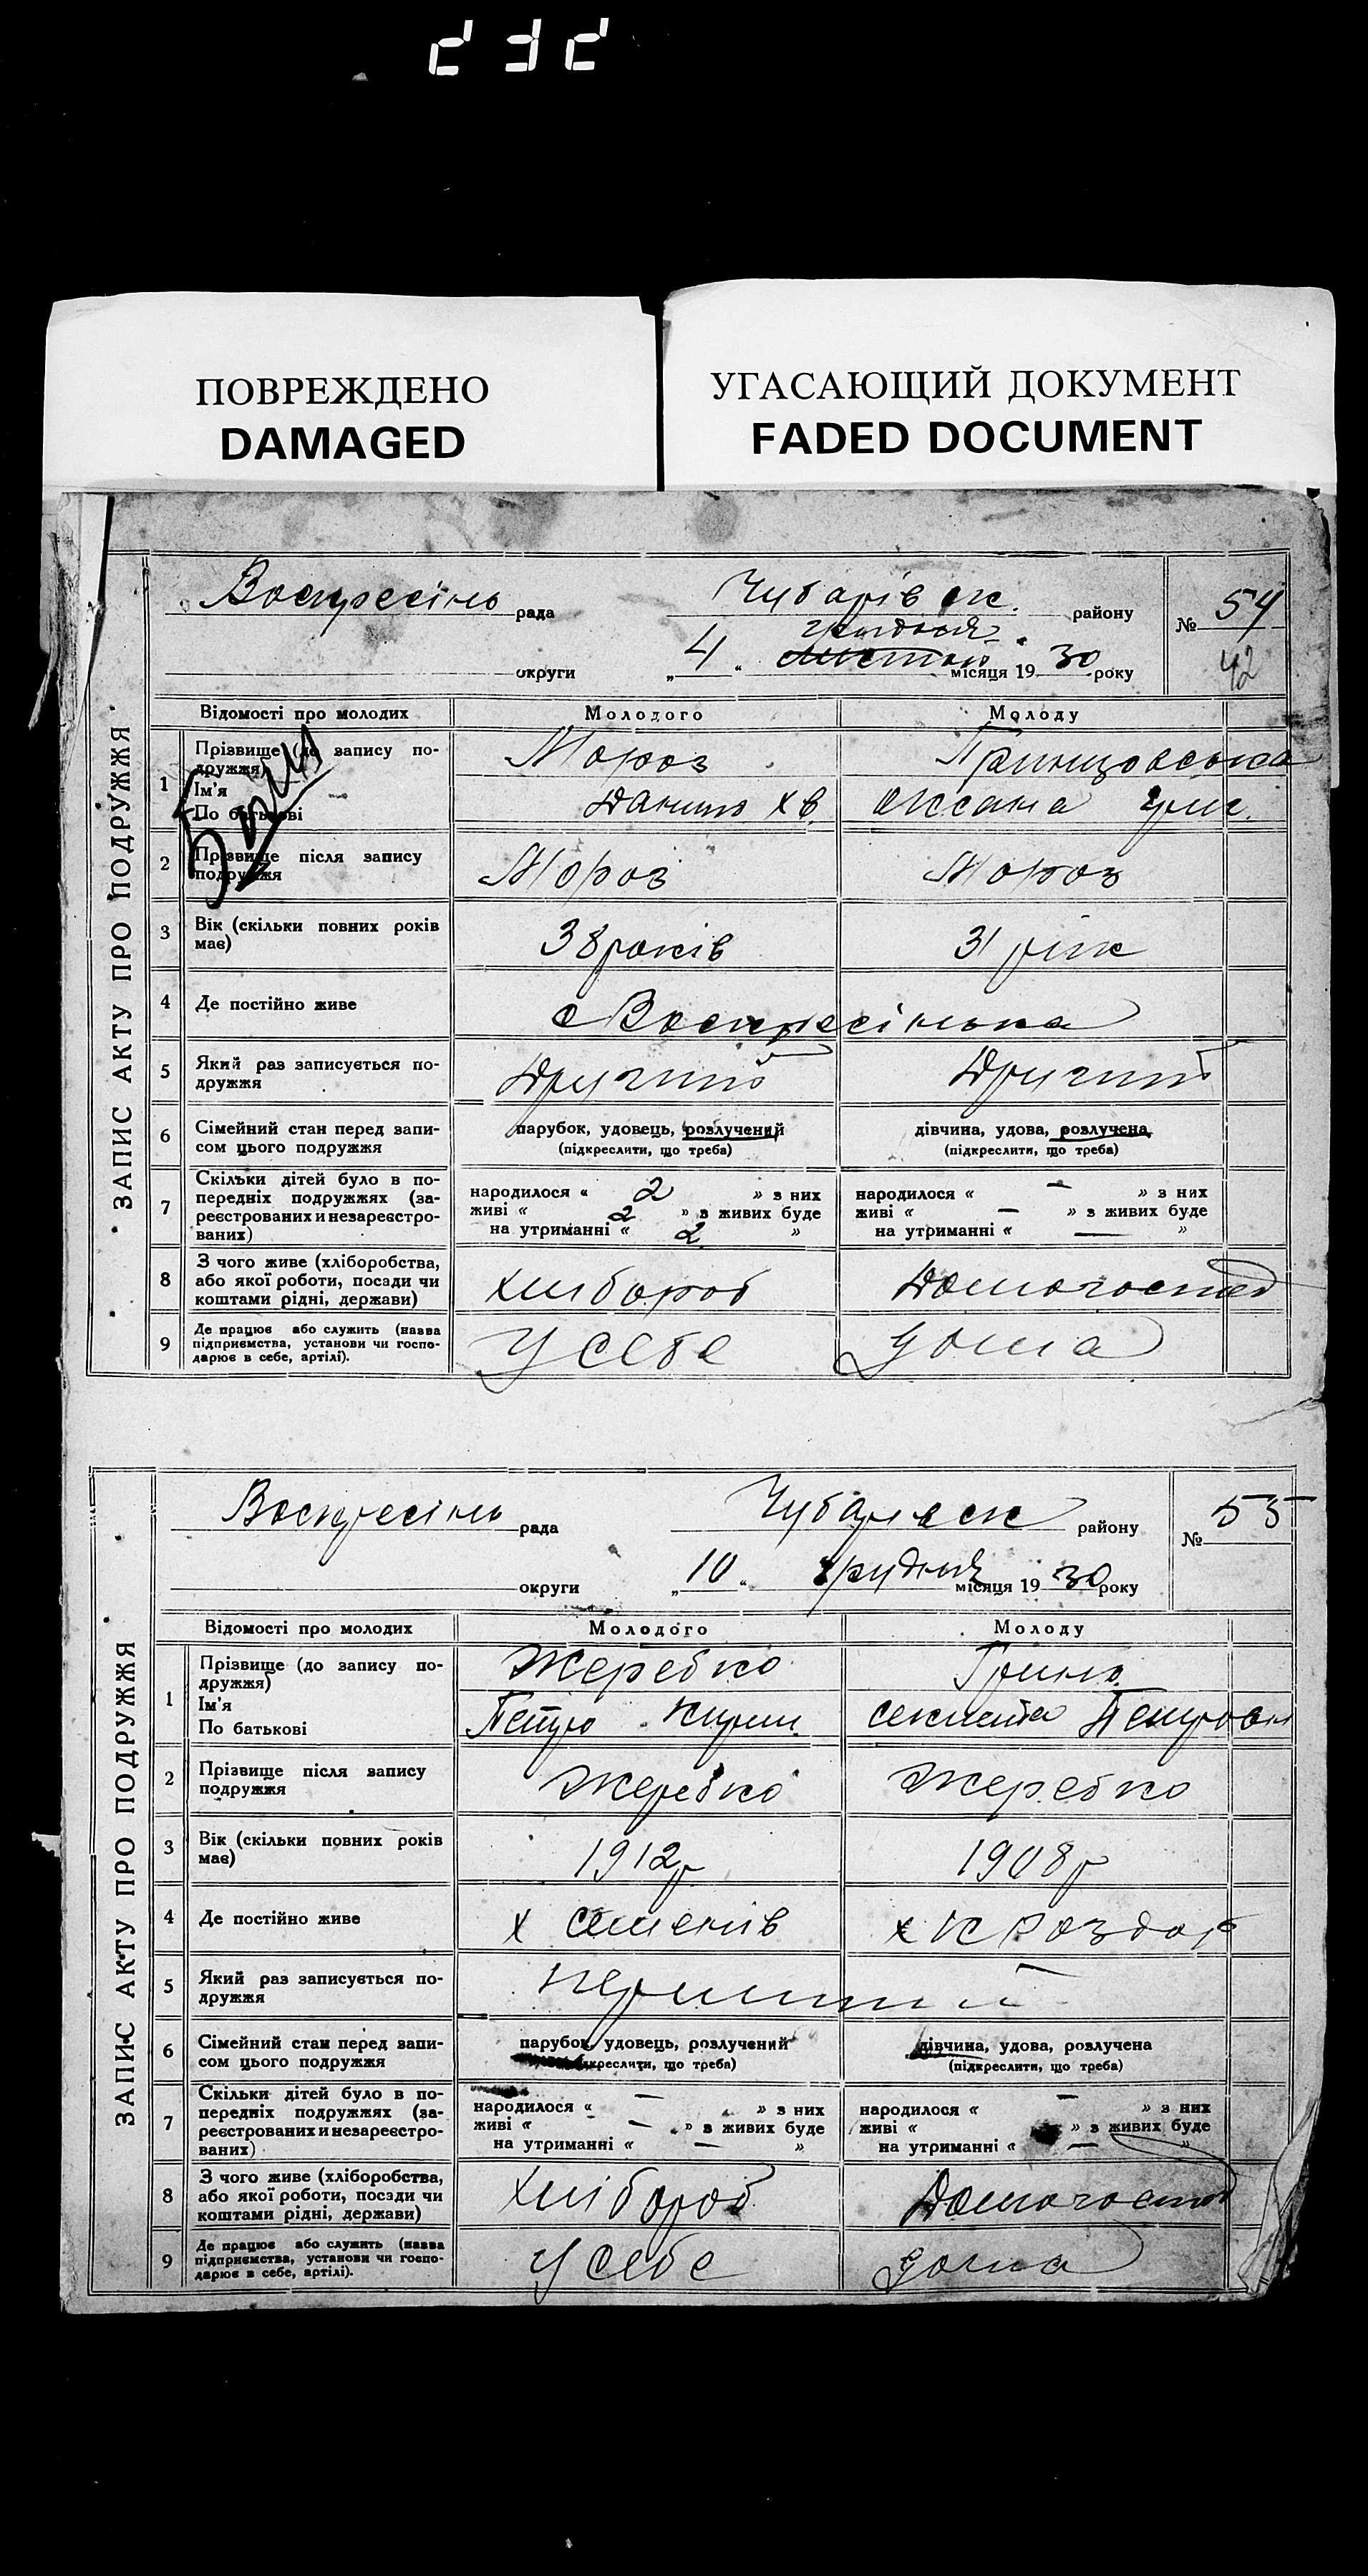 232
ПОВРЕЖДЕНО
DAMAGED
УГАСАЮЩИЙ ДОКУМЕНТ
FADED DOCUMENT
ЗАПИС АКТУ ПРО ПОДРУЖЖЯ
Воскресінь рада Чубарівск. району № 54
грудня
округи „4“ місяця 1930 року 42
Відомості про молодих Молодого Молоду
1 Прізвище (до запису подружжя) Мороз
Ім'я
По батькові Данило Хв. Оксана
2 Прізвище після запису подружжя Мороз Мороз
3 Вік (скільки повних років має) 38 років 31 рік
4 Де постійно живе с Воскресінька
5 Який раз записується подружжя Другий Другий
6 Сімейний стан перед записом цього подружжя парубок, удовець, розлучений дівчина, удова, розлучена
(підкреслити, що треба) (підкреслити, що треба)
7 Скільки дітей було в попередніх подружжях (зареєстрованих и незареєстрованих) народилося « 2 » з них народилося « — » з них
живі « 2 » з живих буде живі « — » з живих буде
на утриманні « 2 » на утриманні « — »
8 З чого живе (хліборобства, або якої роботи, посади чи коштами рідні, держави) хлібороб Домогоспод
9 Де працює або служить (назва підприємства, установи чи господарює в себе, артілі). У себе Дома
ЗАПИС АКТУ ПРО ПОДРУЖЖЯ
Воскресінь рада Чубаревск району № 55
округи „10“ грудня місяця 1930 року
Відомості про молодих Молодого Молоду
1 Прізвище (до запису подружжя) Жеребко Гринь
Ім'я
По батькові Петро Кирил. Секлета Петровн
2 Прізвище після запису подружжя Жеребко Жеребко
3 Вік (скільки повних років має) 1912 р 1908 р
4 Де постійно живе х Семенів х К Роздор
5 Який раз записується подружжя перший
6 Сімейний стан перед записом цього подружжя парубок, удовець, розлучений дівчина, удова, розлучена
(підкреслити, що треба) (підкреслити, що треба)
7 Скільки дітей було в попередніх подружжях (зареєстрованих и незареєстрованих) народилося « — » з них народилося « — » з них
живі « — » з живих буде живі « » з живих буде
на утриманні « — » на утриманні « — »
8 З чого живе (хліборобства, або якої роботи, посади чи коштами рідні, держави) Хлібороб Домогоспод
9 Де працює або служить (назва підприємства, установи чи господарює в себе, артілі). У себе Дома